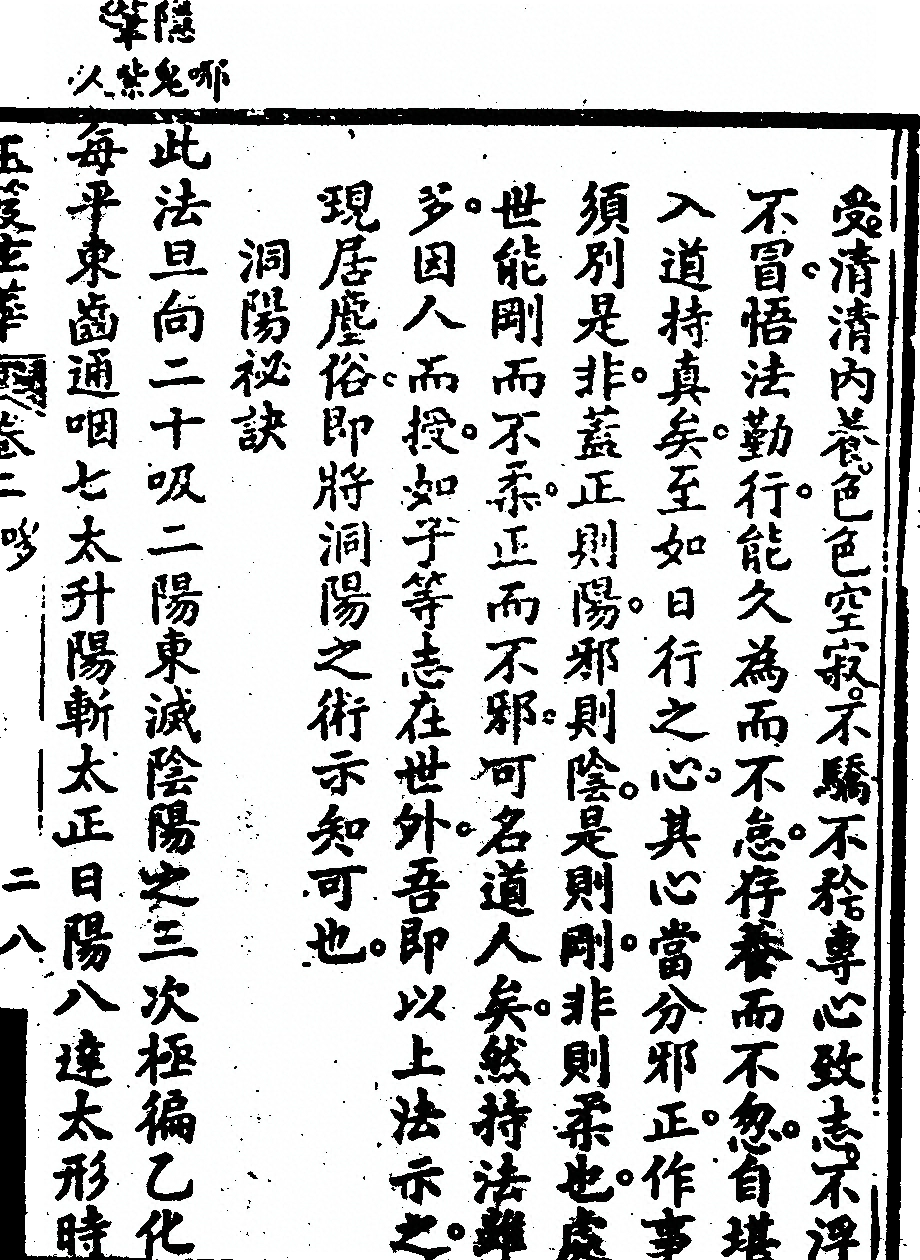 受清清內養色色空寂不驕不矜專心致志不浮
不冒悟法勤行能久為而不怠存養而不忽自堪
入道持真矣至如日行之心其心當分邪正作事
須別是非蓋正則陽邪則陰是則剛非則柔也處
世能剛而不柔正而不邪可名道人矣然持法雖
多因人而授如子等志在世外吾即以上法示之
現居塵俗即將洞陽之術示知可也
洞陽祕訣
此法旦向二十吸二陽東滅陰陽之三次極徧乙化
每平東齒通咽七太升陽斬太正日陽八達太形時
卷二
二八